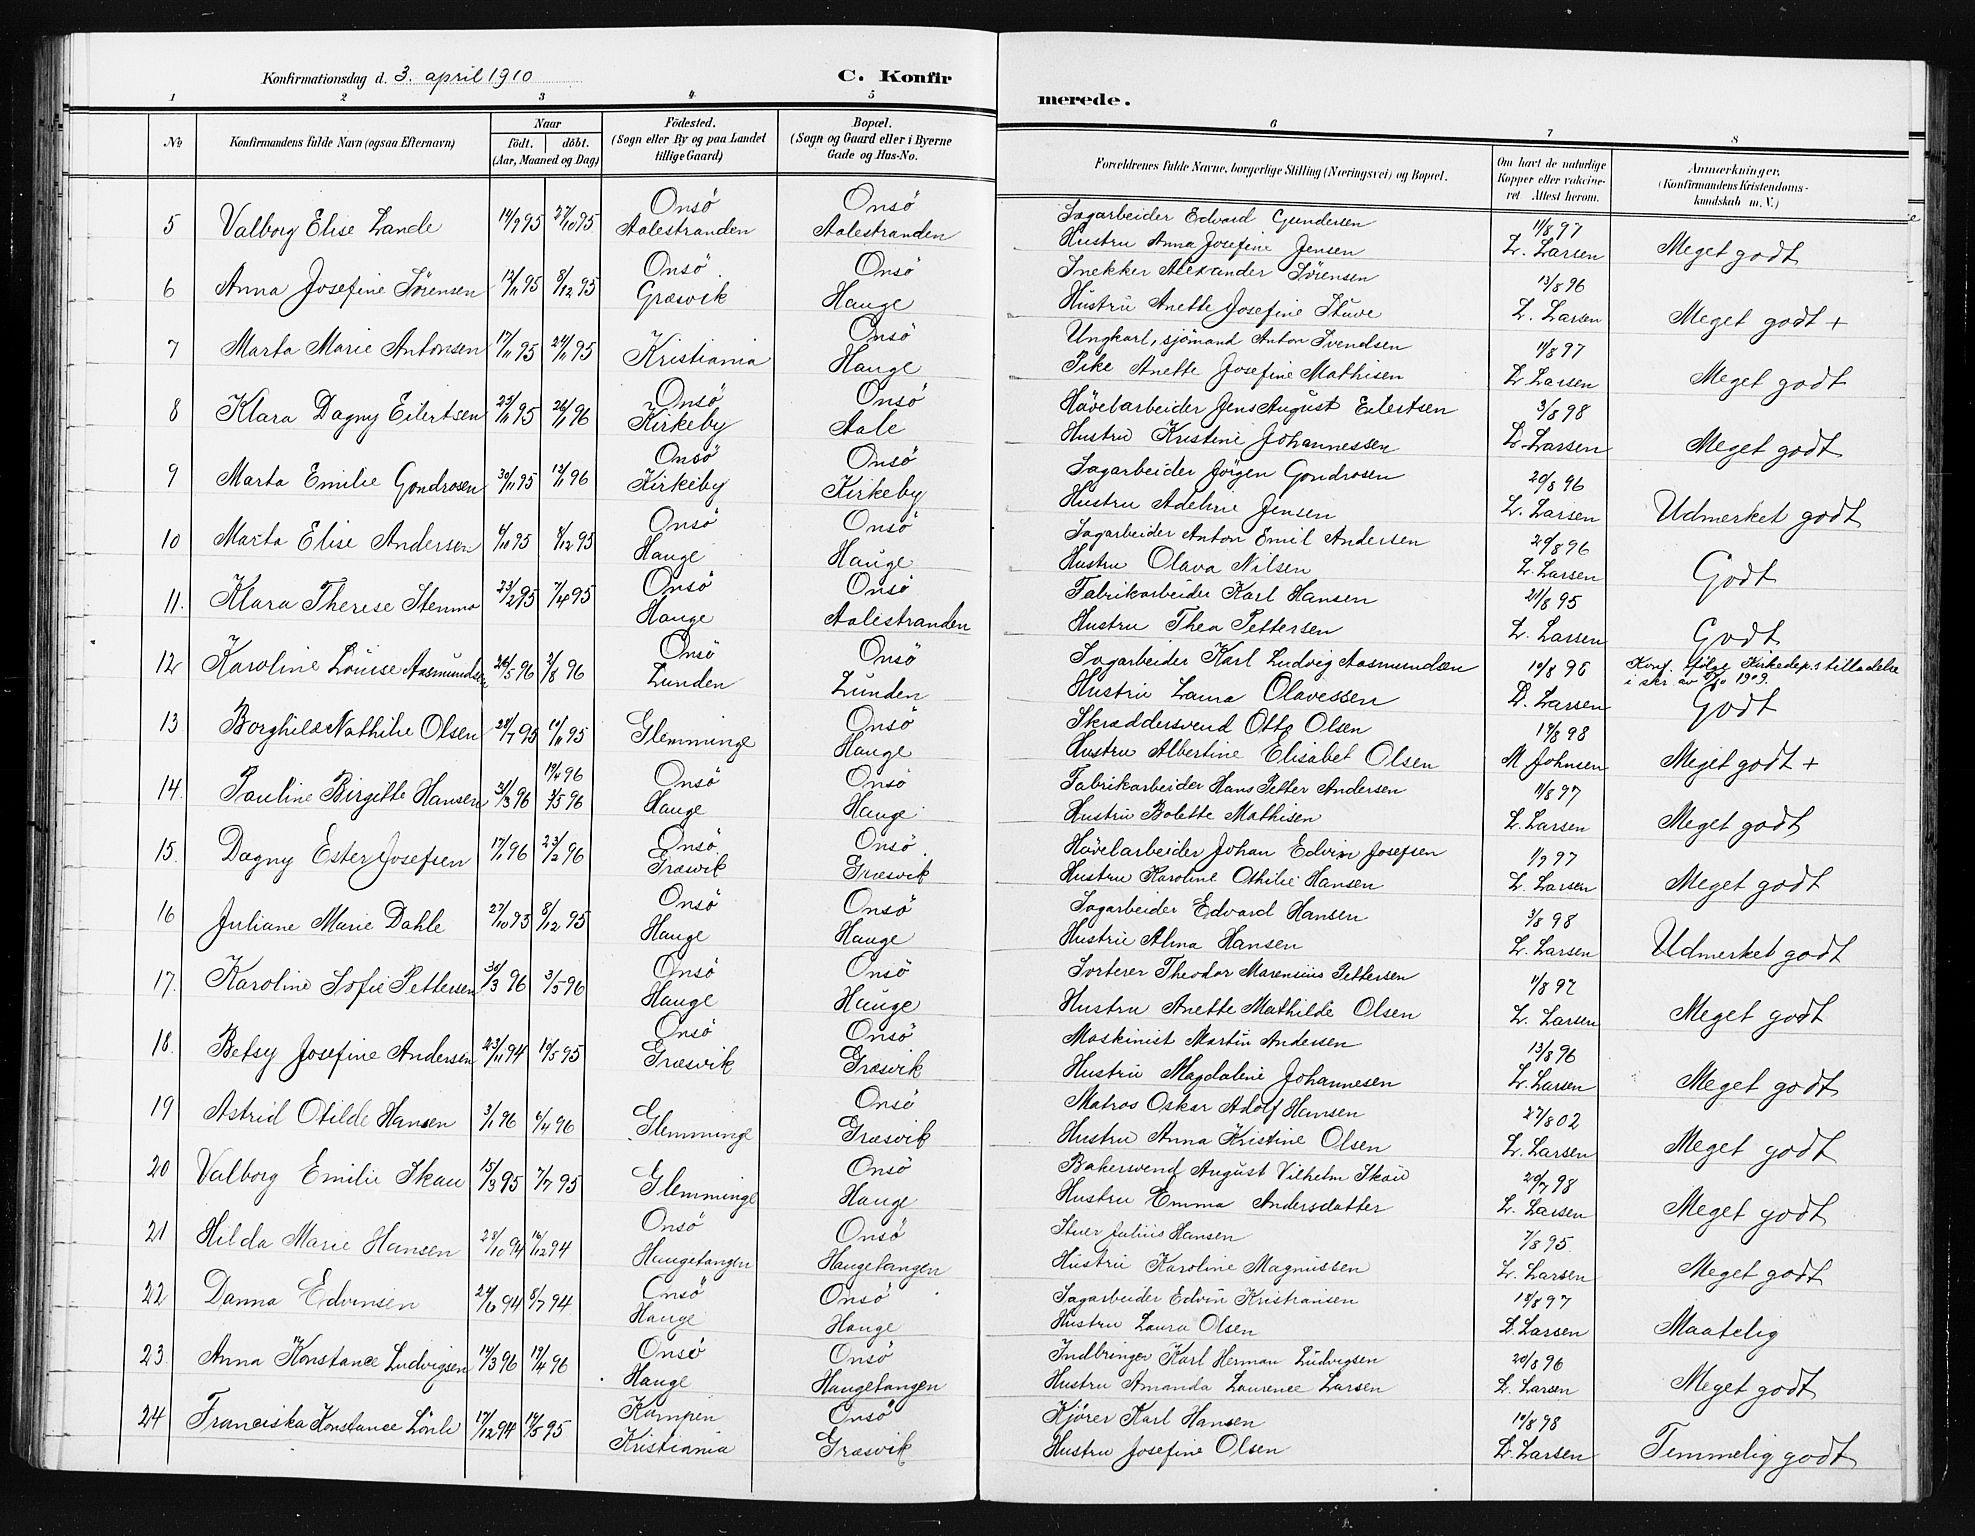 Konfirmationsdag d. 3. april 1910
C. Konfir
merede.
1 2 3 4 5 6 7 8
№ Konfirmandens fulde Navn (ogsaa Efternavn)
Naar
födt. döbt.
(Aar, Maaned og Dag)
Födested.
(Sogn eller By og paa Landet
tillige Gaard)
Bopæl.
(Sogn og Gaard eller i Byerne
Gade og Hus-No.
Forældrenes fulde Navne, borgerlige Stilling (Næringsvei) og Bopæl.
Om havt de naturlige
Kopper eller vakcine-
ret Attest herom.
Anmærkninger.
(Konfirmandens Kristendoms-
kundskab m. V.)
Onsö Onsö Sagarbeider Edvard Gundersen 11/8 97
5 Valborg Elise Lande 14/9 95 27/10 95 Aalestranden Aalestranden Hustru Anna Josefine Jensen L. Larsen Meget godt
Onsö Onsö Snekker Alexander Sörensen 13/8 96
6 Anna Josefine Sörensen 12/11 95 8/12 95 Græsvik Hauge Hustru Anette Josefine Stuve L. Larsen Meget godt +
Onsö Ungkarl, sjömand Anton Svendsen 11/8 97
7 Marta Marie Antonsen 17/11 95 24/11 95 Kristiania Hauge Pike Anette Josefine Mathisen L. Larsen Meget godt
Onsö Onsö Hövelarbeider Jens August Eilertsen 3/8 98
8 Klara Dagny Eilertsen 23/11 95 26/1 96 Kirkeby Aale Hustru Kristine Johannessen L. Larsen Meget godt
Onsö Onsö Sagarbeider Jörgen Gondrosen 20/8 96
9 Marta Emilie Gondrosen 30/11 95 12/1 96 Kirkeby Kirkeby Hustru Adeline Jensen L. Larsen Udmerket godt
Onsö Onsö Sagarbeider Anton Emil Andersen 20/8 96
10 Marta Elise Andersen 6/11 95 8/12 95 Hauge Hauge Hustru Olava Nilsen L. Larsen Godt
Onsö Onsö Fabrikarbeider Karl Hansen 21/8 95
11. Klara Therese Stenmo 23/2 95 7/4 95 Hauge Aalestranden Hustru Thea Pettersen L. Larsen Godt
Onsö Onsö Sagarbeider Karl Ludvig Aasmundsen 10/8 96 Konf. ifölge Kirkedep.s tilladelse
i skr. av 8/10 1909.
12 Karoline Louise Aasmundsen 26/5 96 2/8 96 Lunden Lunden Hustru Laura Olavessen L. Larsen Godt
Onsö Skræddersvend Otto Olsen 19/8 98
13 Borghild Nathilie Olsen 28/7 95 10/11 95 Glemminge Hauge Hustru Albertine Elisabet Olsen M Johnsen Meget godt +
19/4 96 Onsö Onsö Fabrikarbeider Hans Petter Andersen 11/8 97
14. Pauline Birgitte Hansen 31/3 96 3/5 96 Hauge Hauge Hustru Bolette Mathisen L. Larsen Meget godt
Onsö Onsö Hövelarbeider Johan Edvin Josefsen 1/9 97
15. Dagny Ester Josefsen 17/1 96 23/2 96 Græsvik Græsvik Hustru Karoline Othilie Hansen L. Larsen Meget godt
Onsö Onsö Sagarbeider Edvard Hansen 3/8 98
16 Juliane Marie Dahle 27/10 95 8/12 95 Hauge Hauge Hustru Alma Hansen L. Larsen Udmerket godt
Onsö Onsö Sorterer Theodor Marensius Pettersen 11/8 97
17. Karoline Sofie Pettersen 30/3 96 3/5 96 Hauge Hauge Hustru Anette Mathilde Olsen L. Larsen Meget godt
Onsö Onsö Maskinist Martin Andersen 13/8 96
18. Betsy Josefine Andersen 23/11 94 19/5 95 Græsvik Græsvik Hustru Magdaline Johannesen L. Larsen Meget godt
Onsö Matros Oskar Adolf Hansen 27/8 02
19 Astrid Otilde Hansen 3/1 96 6/4 96 Glemminge Græsvik Hustru Anna Kristine Olsen L. Larsen Meget godt
Onsö Bakersvend August Vilhelm Skau 20/7 98
20 Valborg Emilie Skau 15/3 95 7/7 95 Glemminge Hauge Hustru Emma Andersdatter L. Larsen Meget godt
Onsö Onsö Stuer Julius Hansen 7/8 95.
21 Hilda Marie Hansen 28/10 94 16/12 94 Haugetangen Haugetangen Hustru Karoline Magnussen L. Larsen Meget godt
Onsö Onsö Sagarbeider Edvin Kristiansen 18/8 97
22 Danna Edvinsen 24/6 94 8/7 94 Hauge Hauge Hustru Laura Olsen L. Larsen Maatelig
Onsö Onsö Indbringer Karl Herman Ludvigsen 20/8 96
23. Anna Konstance Ludvigsen 14/3 96 19/4 96 Hauge Haugetangen Hustru Amanda Laurence Larsen L. Larsen Meget godt
Kampen Onsö Kjörer Karl Hansen 10/8 98
24 Franciska Konstance Lönli 17/12 94 12/5 95 Kristiania Græsvik Hustru Josefine Olsen L. Larsen Temmelig godt